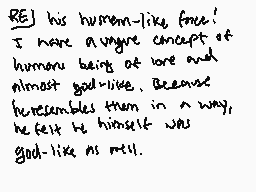 RE) his human-like face!
I have a vague concept of
humans being of lore and
almost god-like. Because
he resembles them in a way,
he felt he himself was
god-like as well.